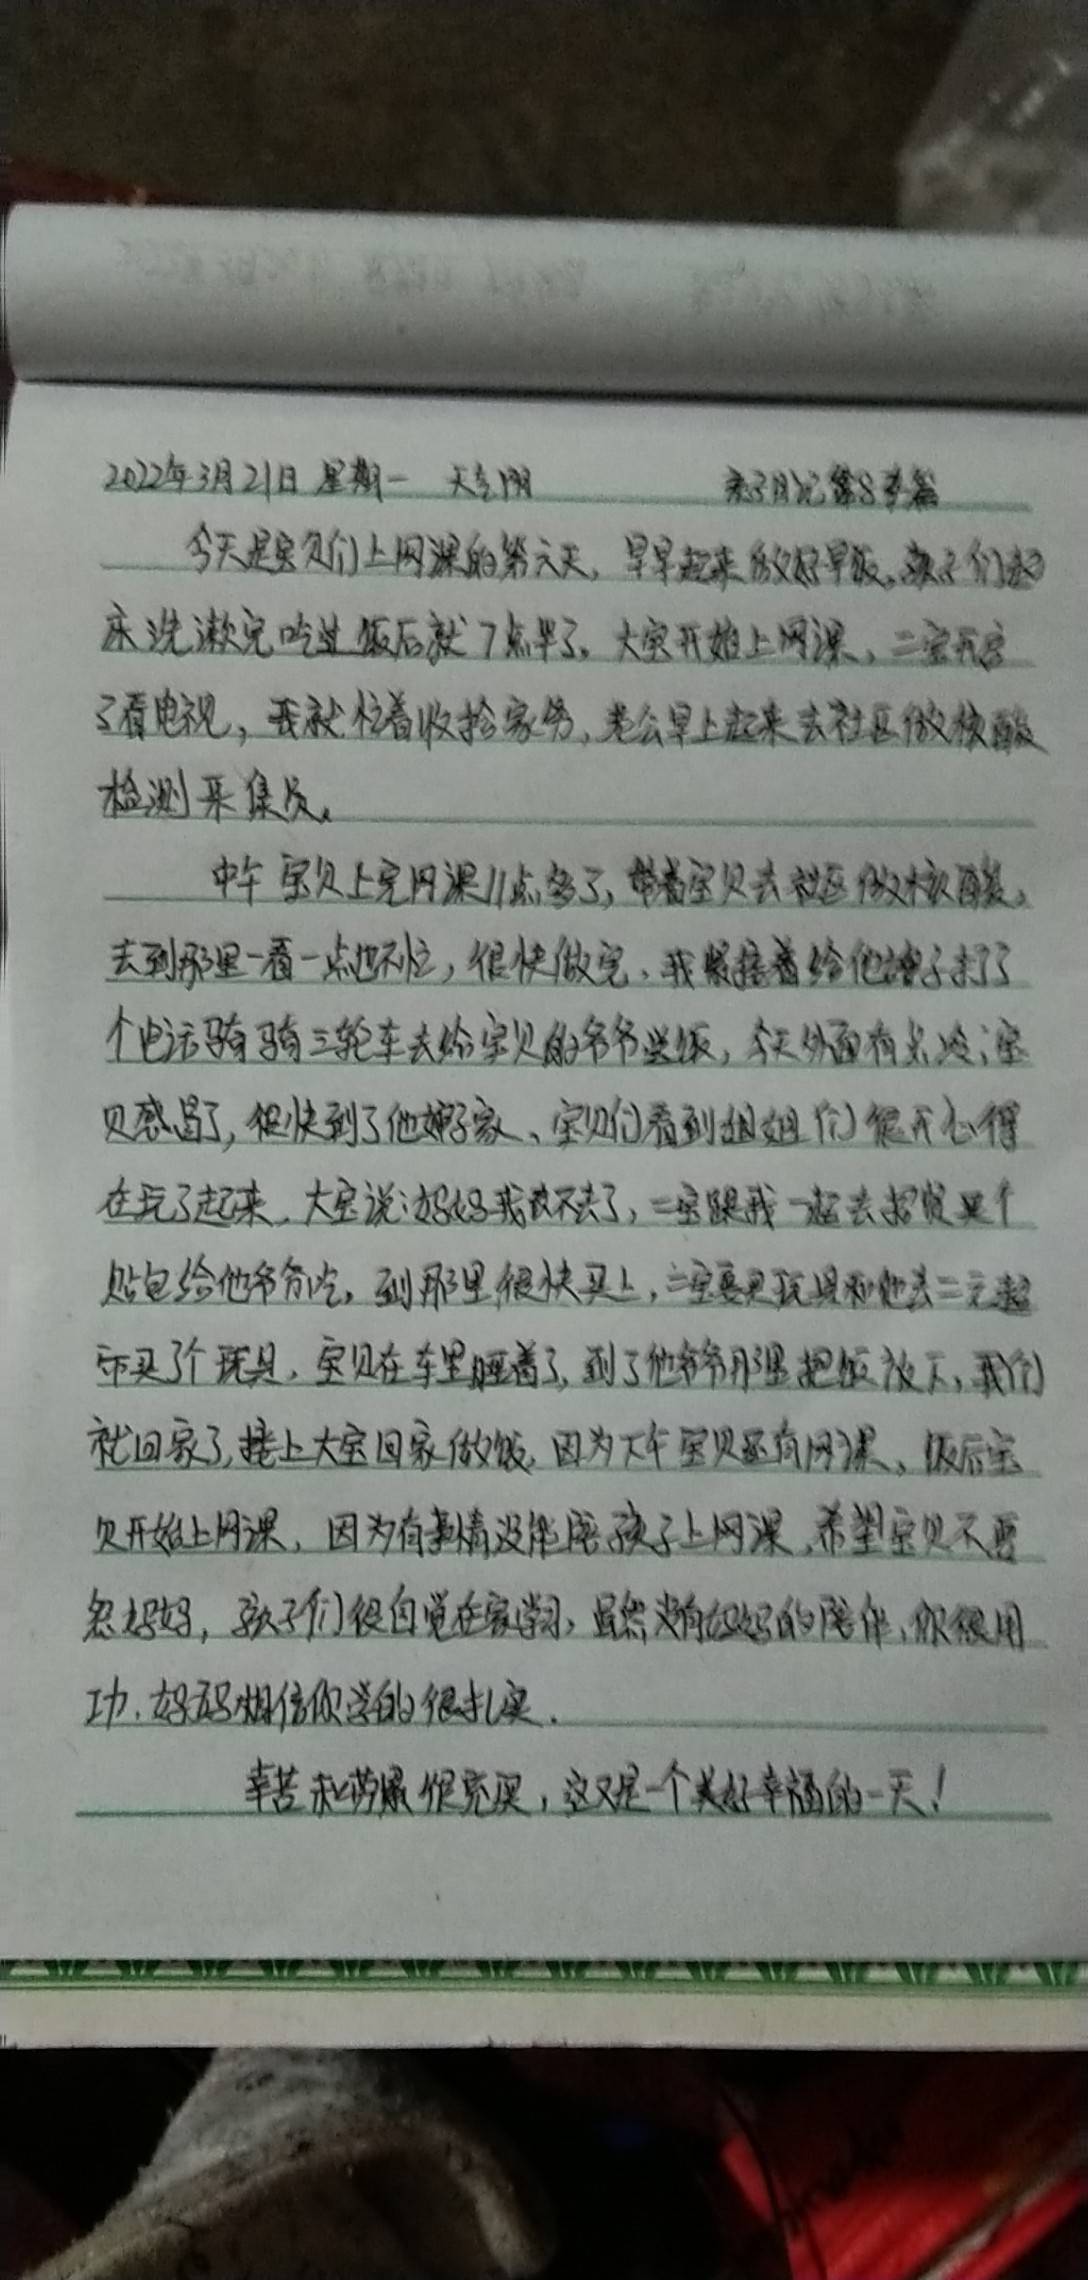 2022年3月21日 星期一 天气阴 亲子日记第8篇
今天是宝贝们上网课的第六天，早早起来做好早饭，孩子们起
床洗漱完吃过饭后就7点半了。大宝开始上网课，二宝开
了看电视，我就忙着收拾家务，老公早上起来去社区做核酸
检测采集员。
中午宝贝上完网课11点多了，带着宝贝去社区做核酸，
去到那里一看一点也不忙，很快做完，我紧接着给他婶子打了
个电话骑骑三轮车去给宝贝的爷爷送饭，今天外面有点冷，宝
贝感冒了，很快到了他婶子家、宝贝们看到姐姐们很开心得
在玩了起来，大宝说：妈妈我就不去了，二宝跟我一起去买个
包给他爷爷吃，到那里很快买上，二宝要买玩具和他去二元超
市买了个玩具，宝贝在车里睡着了，到了他爷爷那里把饭放下，我们
就回家了，接上大宝回家做饭，因为下午宝贝还有网课，饭后宝
贝开始上网课，因为有事情没能陪孩子上网课，希望宝贝不要
怨妈妈，孩子们很自觉在家学习，虽然没有妈妈的陪伴，你很用
功，妈妈相信你学的很扎实.
辛苦和劳累很充实，这又是一个美好幸福的一天！